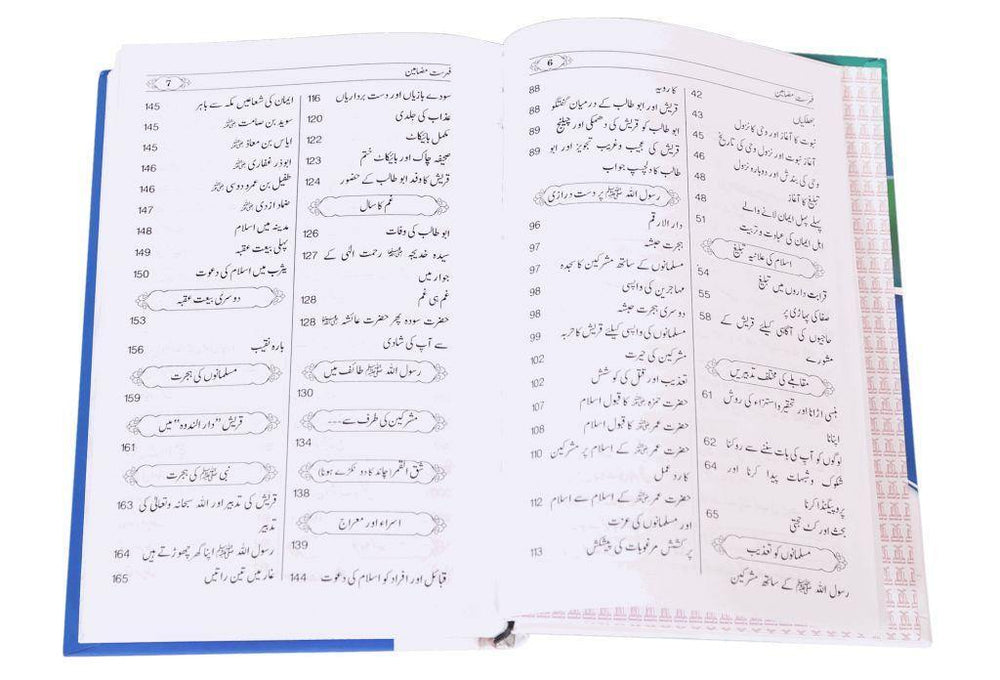 فہرست مضامین 6
جھلکیاں 42
نبوت کا آغاز اور وحی کا نزول 43
آغاز نبوت اور نزول وحی کی تاریخ 45
وحی کی بندش اور دوبارہ نزول 46
تبلیغ کا آغاز 48
پہلے پہل ایمان لانے والے 48
اہل ایمان کی عبادت و تربیت 51
اسلام کی علانیہ تبلیغ
قرابت داروں میں تبلیغ 54
صفا کی پہاڑی پر 55
حاجیوں کی آگاہی کیلئے قریش کے 58
مشورے
مقابلے کی مختلف تدبیریں
ہنسی اڑانا اور تحقیر و استہزاء کی روش 61
اپنانا
لوگوں کو آپ کی بات سننے سے روکنا 62
شکوک و شبہات پیدا کرنا اور 64
پروپیگنڈا کرنا
بحث اور کٹ حجتی 65
مسلمانوں کو تعذیب
رسول اللہ ﷺ کے ساتھ مشرکین
کا رویہ 88
قریش اور ابو طالب کے درمیان گفتگو 88
ابو طالب کو قریش کی دھمکی اور چیلنج 89
قریش کی عجیب و غریب تجویز اور ابو 89
طالب کا دلچسپ جواب
رسول اللہ ﷺ پر دست درازی
دار الارقم 96
ہجرت حبشہ 97
مسلمانوں کے ساتھ مشرکین کا سجدہ 97
مہاجرین کی واپسی 98
دوسری ہجرت حبشہ 98
مسلمانوں کی واپسی کیلئے قریش کا حربہ 99
مشرکین کی حیرت 102
تعذیب اور قتل کی کوشش 102
حضرت حمزہ ؓ کا قبول اسلام 107
حضرت عمر ؓ کا قبول اسلام 108
حضرت عمر ؓ کے اسلام پر مشرکین 110
کا رد عمل
حضرت عمر ؓ کے اسلام سے اسلام 112
اور مسلمانوں کی عزت
پر کشش مرغوبات کی پیشکش 113
فہرست مضامین 7
سودے بازیاں اور دست برداریاں 116
عذاب کی جلدی 120
مکمل بائیکاٹ 122
صحیفہ چاک اور بائیکاٹ ختم 123
قریش کا وفد ابو طالب کے حضور 124
غم کا سال
ابو طالب کی وفات 126
سیدہ خدیجہ ؓ رحمت الٰہی کے 127
جوار میں
غم ہی غم 128
حضرت سودہ پھر حضرت عائشہ ؓ 128
سے آپ کی شادی
رسول اللہ ﷺ طائف میں
130
مشرکین کی طرف سے۔۔۔
134
شق القمر (چاند کا دو ٹکڑے ہونا)
138
اسراء اور معراج
139
قبائل اور افراد کو اسلام کی دعوت 144
ایمان کی شعاعیں مکہ سے باہر 145
سوید بن صامت ؓ 145
ایاس بن معاذ ؓ 145
ابوذر غفاری ؓ 146
طفیل بن عمرو دوسی ؓ 146
ضماد ازدی ؓ 147
مدینہ میں اسلام 148
پہلی بیعت عقبہ 149
یثرب میں اسلام کی دعوت 150
دوسری بیعت عقبہ
153
بارہ نقیب 156
مسلمانوں کی ہجرت
159
قریش "دار الندوہ" میں
161
نبی ﷺ کی ہجرت
قریش کی تدبیر اور اللہ سبحانہ وتعالیٰ کی 163
تدبیر
رسول اللہ ﷺ اپنا گھر چھوڑتے ہیں 164
غار میں تین راتیں 165